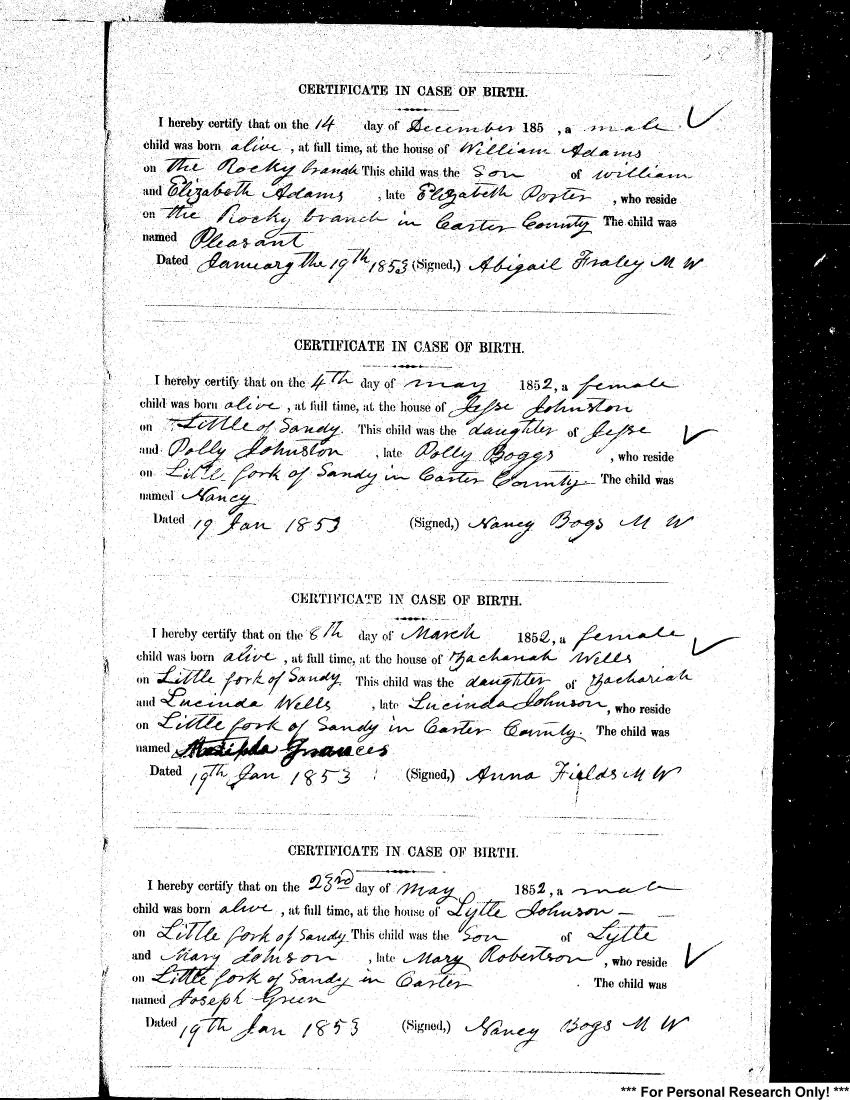 CERTIFICATE IN CASE OF BIRTH.
I hereby certify that on the 14 day of December 185 , a male
child was born alive , at full time, at the house of William Adams
on the Rocky branch This child was the Son of William
and Elizabeth Adams , late Elizabeth Porter , who reside
on the Rocky branch in Carter County The child was
named Pleasant
Dated January the 19th 1853 (Signed,) Abigail Fraley M W
CERTIFICATE IN CASE OF BIRTH.
I hereby certify that on the 4th day of may 1852, a female
child was born alive , at full time, at the house of Jesse Johnston
on Little of Sandy. This child was the daughter of Jesse
and Polly Johnston , late Polly Boggs , who reside
on Little fork of Sandy in Carter County The child was
named Nancy
Dated 19 Jan 1853 (Signed,) Nancy Bogs M W
CERTIFICATE IN CASE OF BIRTH.
I hereby certify that on the 8th day of March 1852, a female
child was born alive , at full time, at the house of Zachariah Wells
on Little fork of Sandy. This child was the daughter of Zachariah
and Lucinda Wells , late Lucinda Johnson, who reside
on Little fork of Sandy in Carter County. The child was
named Frances
Dated 19th Jan 1853 (Signed,) Anna Fields M W
CERTIFICATE IN CASE OF BIRTH.
I hereby certify that on the 23rd day of may 1852, a male
child was born alive , at full time, at the house of Lytle Johnson
on Little fork of Sandy This child was the Son of Lytle
and Mary Johnson , late Mary Robertson , who reside
on Little fork of Sandy in Carter . The child was
named Joseph Green
Dated 19th Jan 1853 (Signed,) Nancy Bogs M W
*** For Personal Research Only! ***